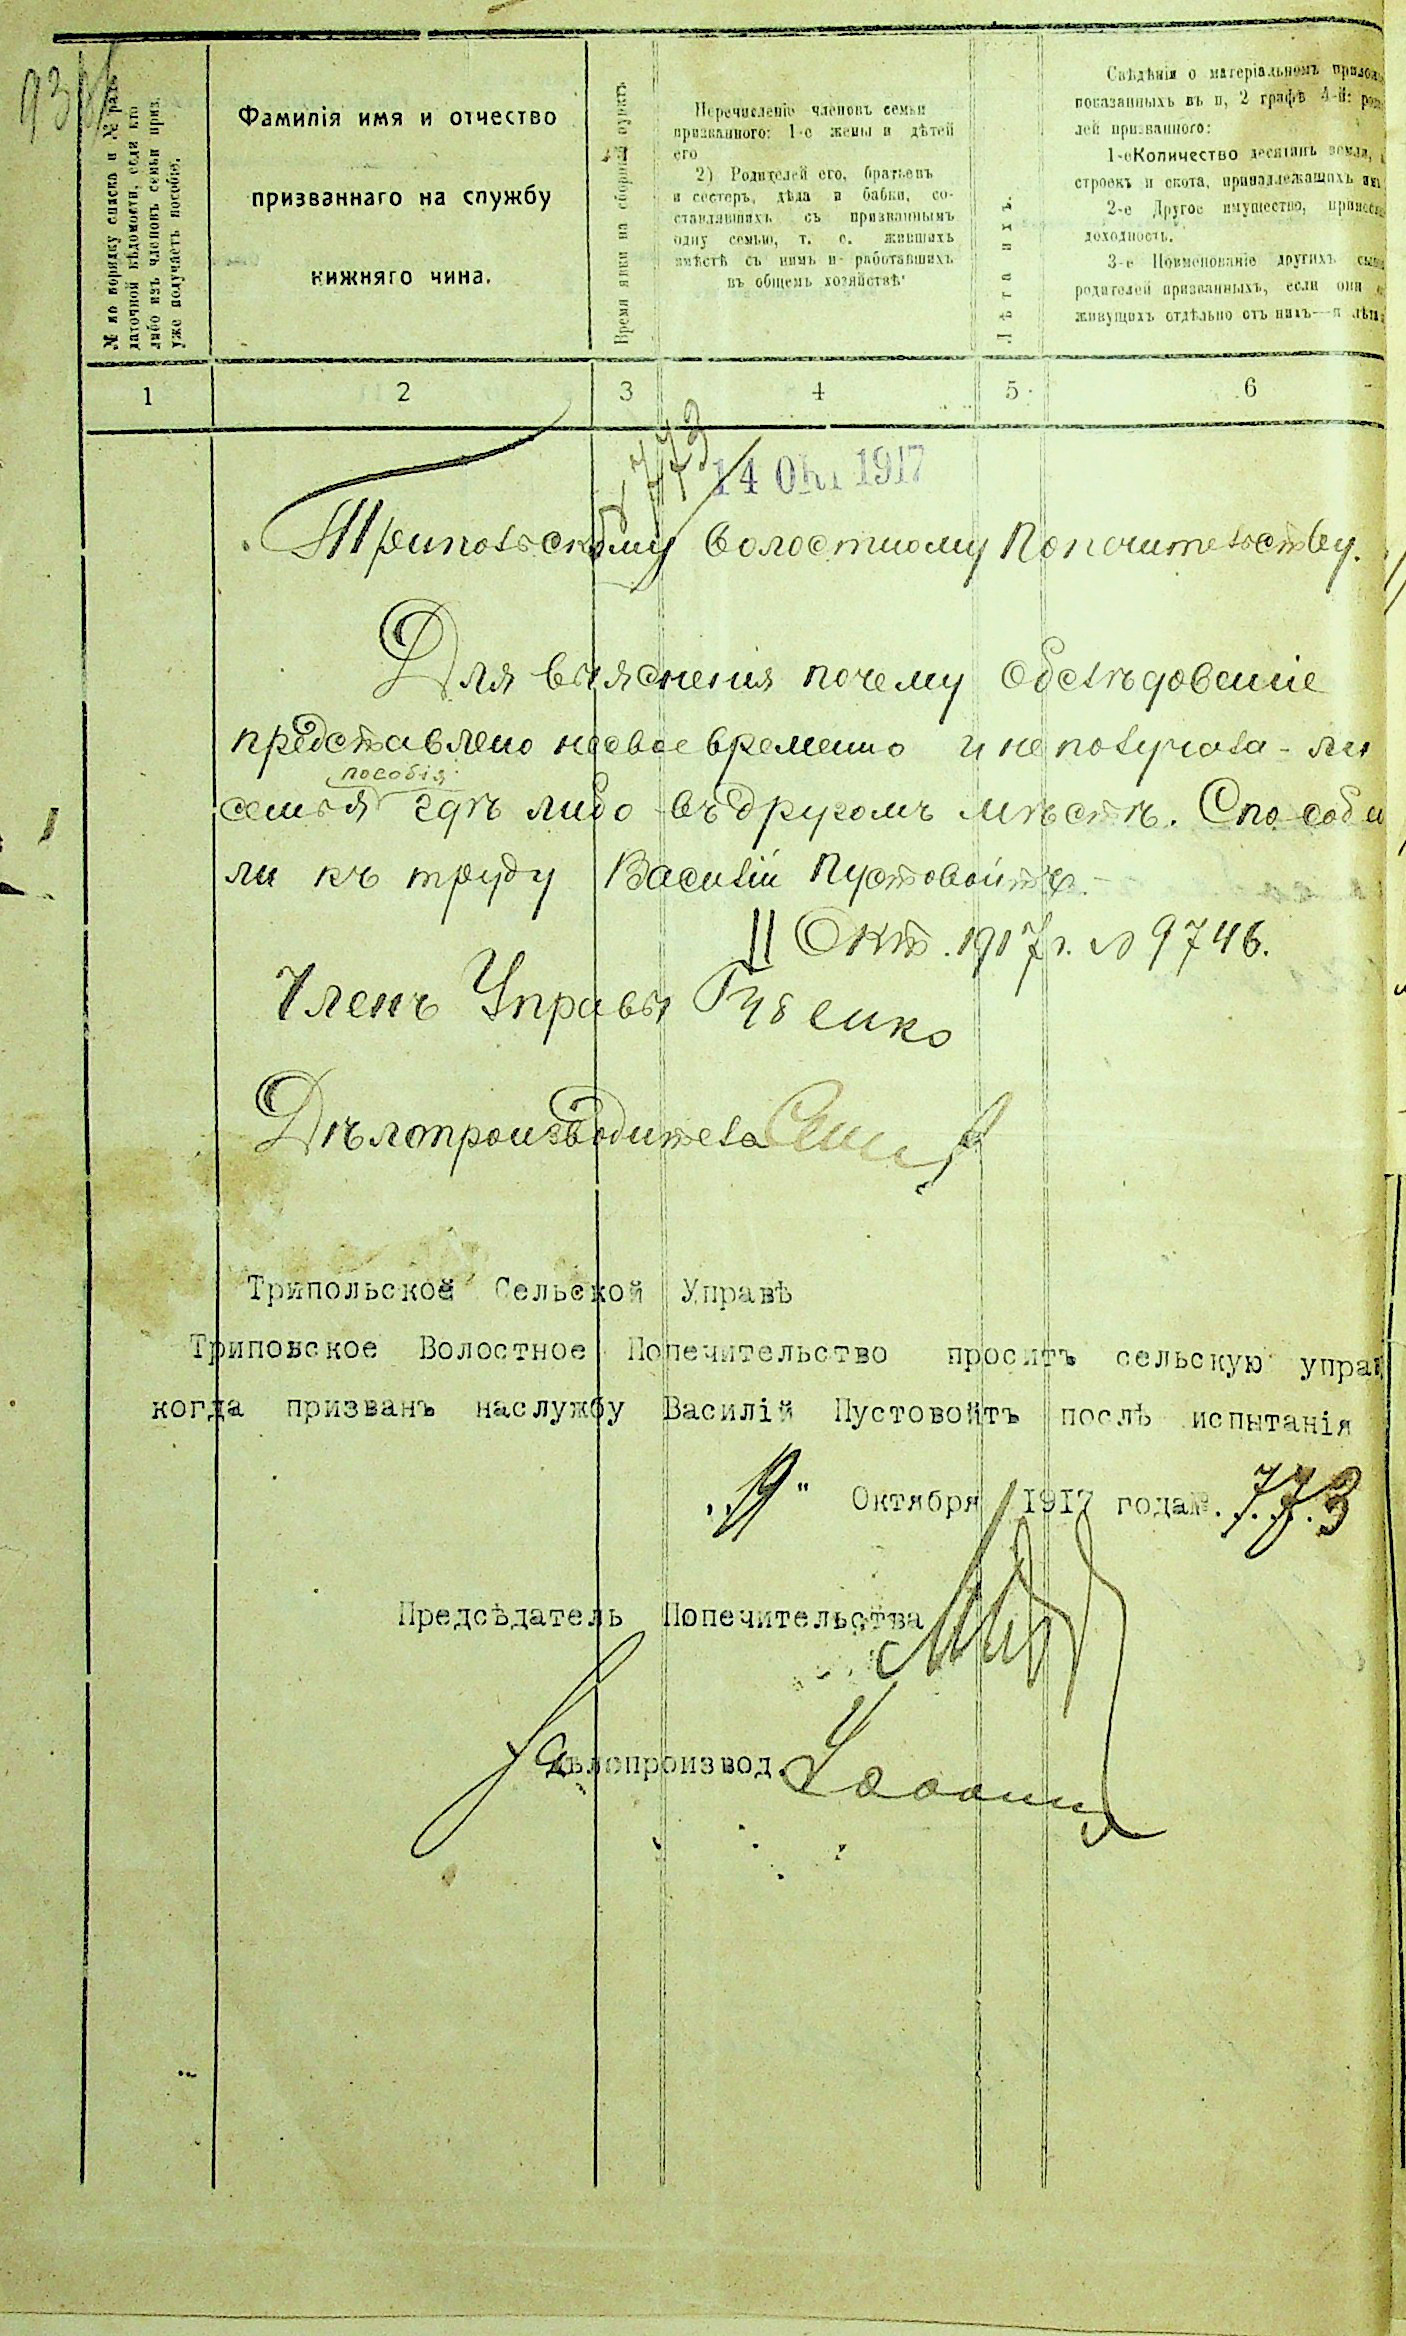 № по порядку списка и № раз-
даточной вѣдомости, если кто
либо изъ членовъ семьи приз.
уже получаетъ пособіе.
Фамилія имя и отчество
призваннаго на службу
нижняго чина.
Время явки на сборный пунктъ
Перечисленіе членовъ семьи
призванного: 1-е жены и дѣтей
его
2) Родителей его, братьевъ
и сестеръ, дѣда и бабки, со-
ставлявшихъ съ призваннымъ
одну семью, т. е. жившихъ
вмѣстѣ съ нимъ и работавшихъ
въ общемъ хозяйствѣ
Лѣта ихъ.
Свѣдѣнія о матеріальномъ
показанныхъ въ п, 2 графѣ 4-й:
лей призванного:
1-е Количество десятинъ земли,
строекъ и скота, принадлежащихъ
2-е Другое имущество,
доходность.
3-е Поименованіе другихъ
родителей призванныхъ, если они
живущихъ отдѣльно отъ нихъ—и
1 2 3 4 5 6
773
14 Окт 1917
Трипольскому Волостному Попечительству.
Для выясненія почему обслѣдованіе
представлено несвоевременно и не получала-ли
пособія
семья гдѣ либо въ другомъ мѣстѣ. Способн
ли къ труду Василій Пустовойтъ.
11 Окт. 1917 г. № 9746.
Членъ Управы Гусенко
Дѣлопроизводитель
Трипольской Сельской Управѣ
Триповское Волостное Попечительство проситъ сельскую управ
когда призванъ наслужбу Василій Пустовойтъ послѣ испытанія
„19" Октября 1917 года№. 773
Предсѣдатель Попечительства
За дѣлопроизвод.